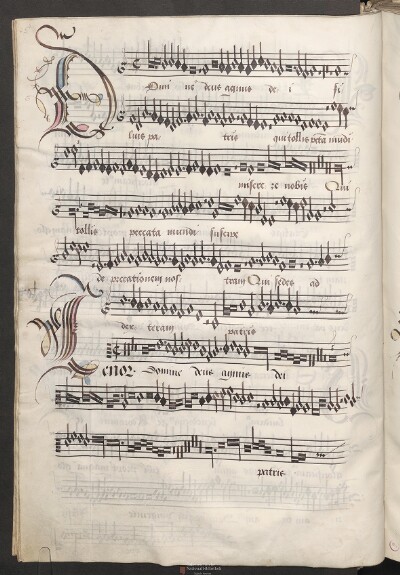 Domine deus agnus de i fi
lius pa tris qui tollis peccata mundi
miserere nobis Qui
tollis peccata mundi suscipe
de precationem nos tram Qui sedes ad
dex teram patris
Tenor Domine deus agnus dei
patris